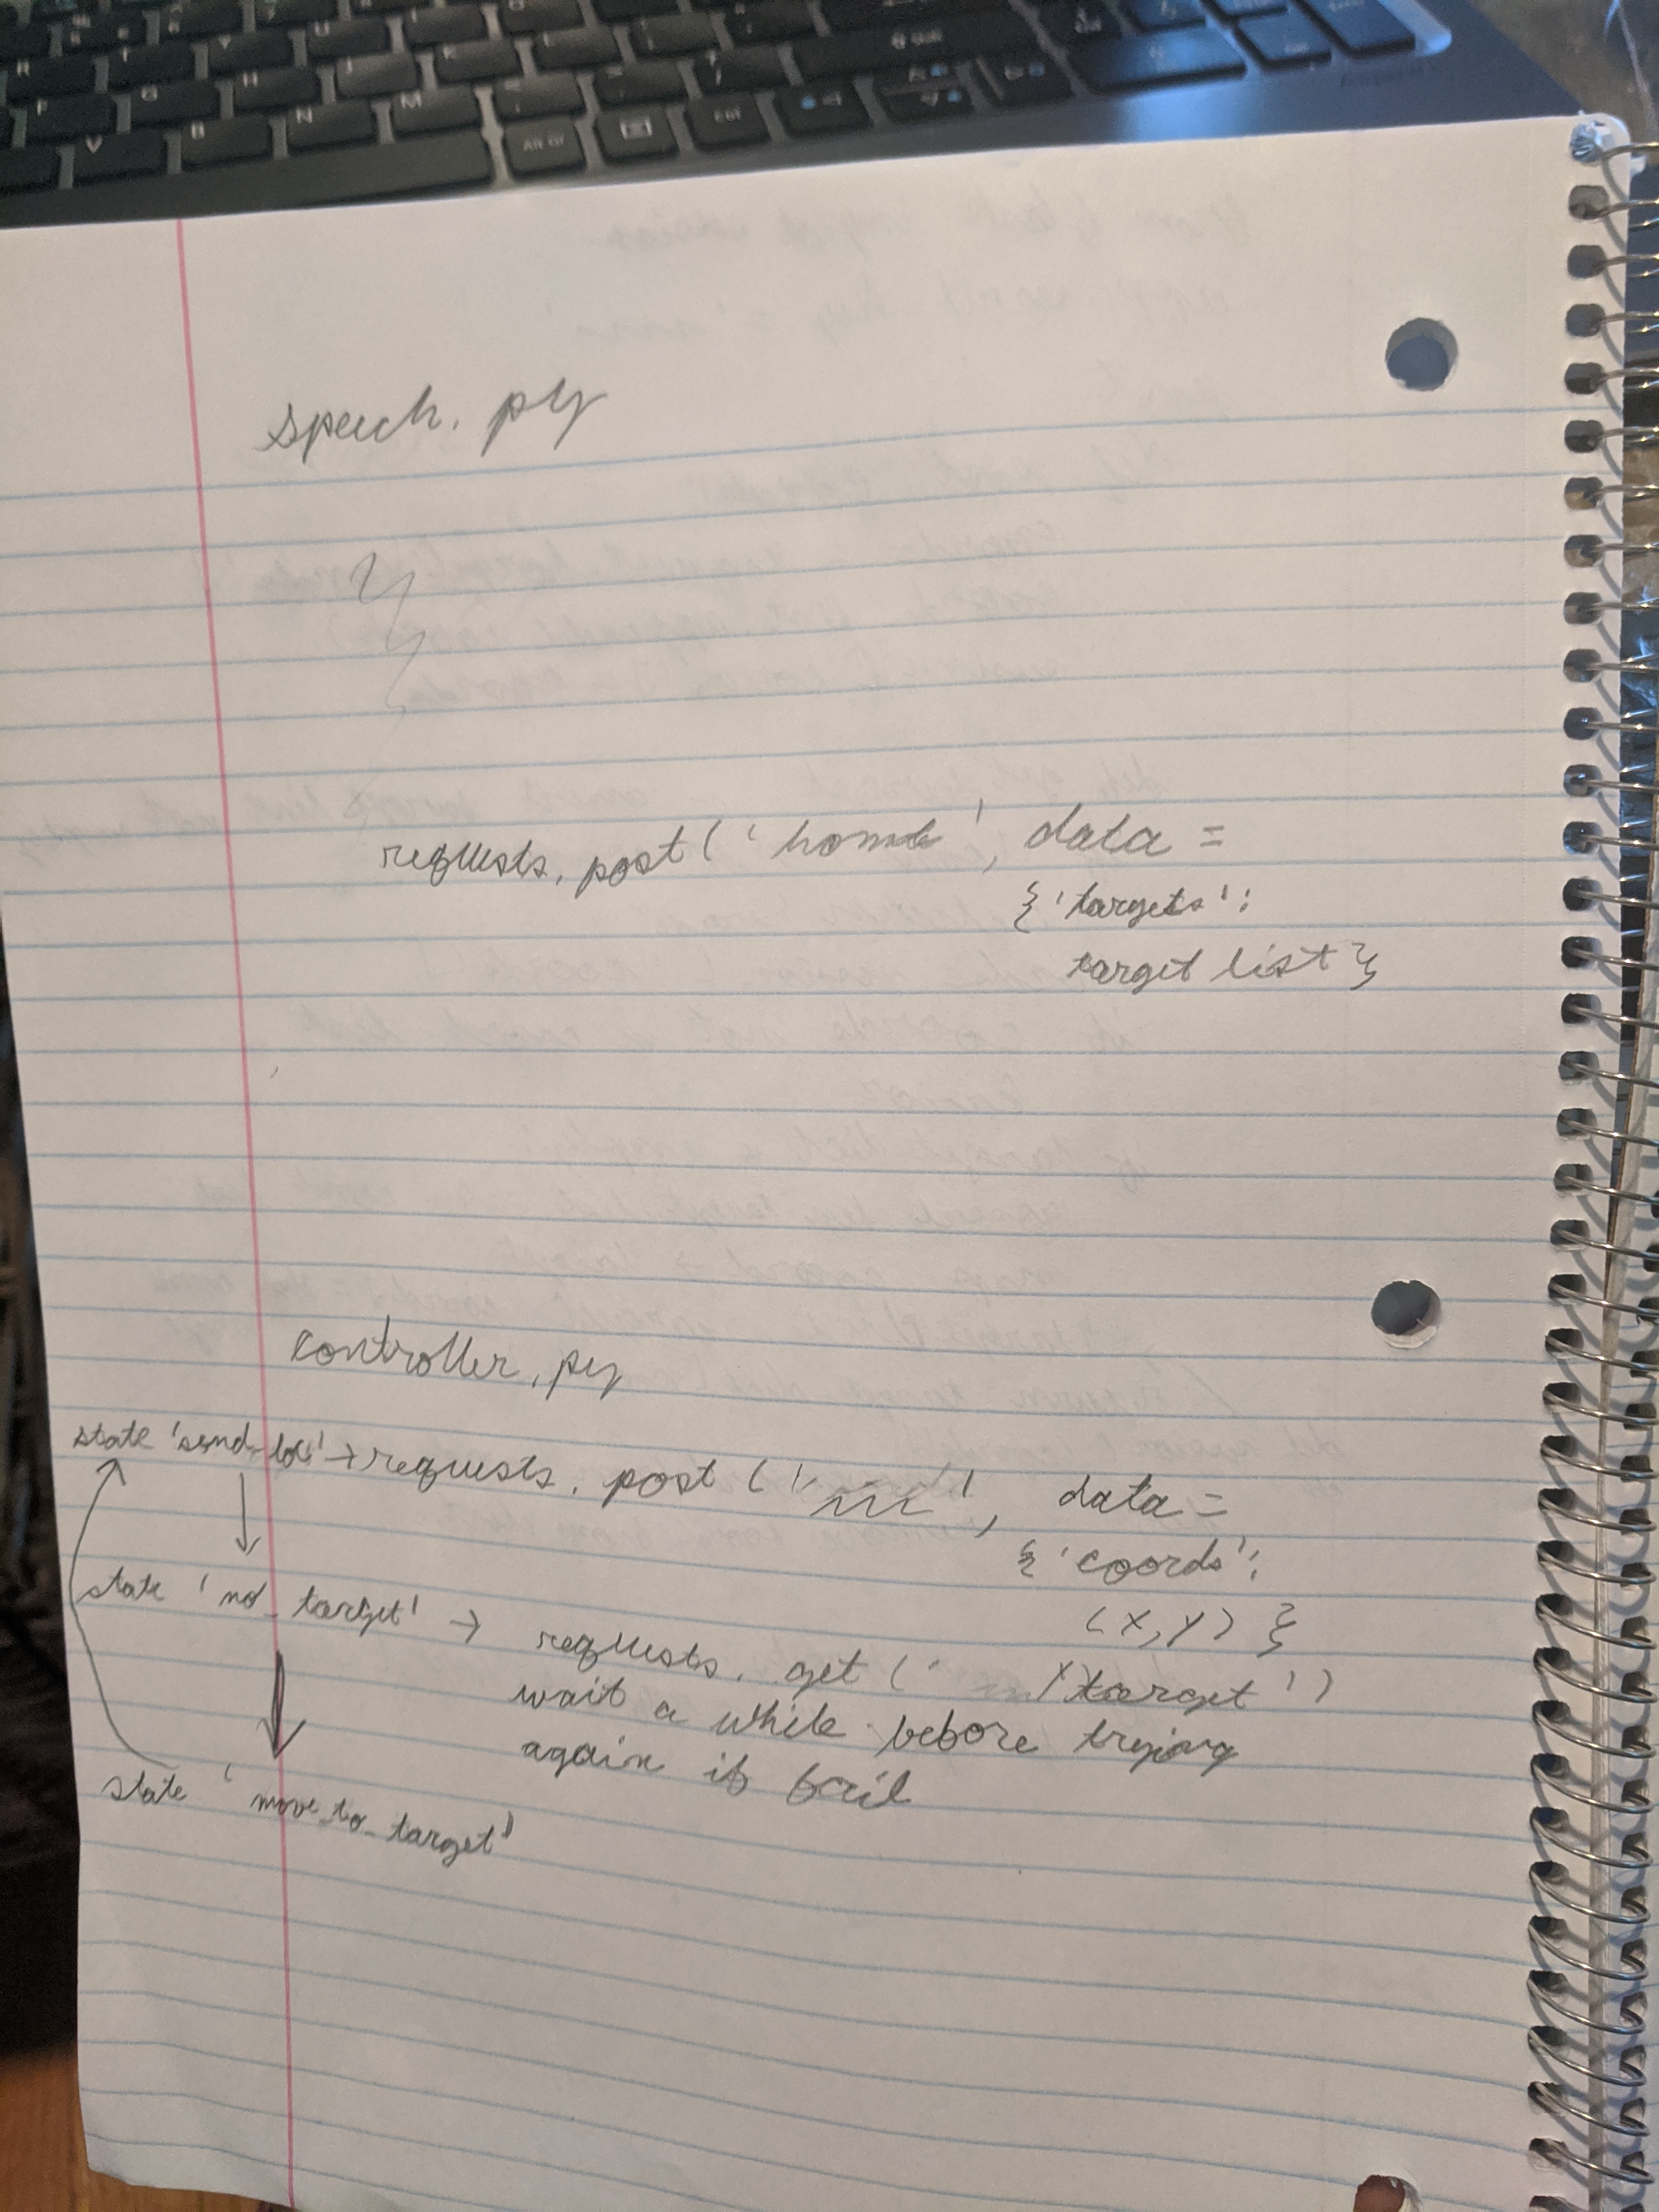 speech.py
requests.post('home', data =
{'targets':
target list}
controller.py
state 'send_loc' → requests.post(' ', data =
{'coords':
(x,y)}
state 'no_target' → requests.get(' /target')
wait a while before trying
again if fail
state 'move_to_target'